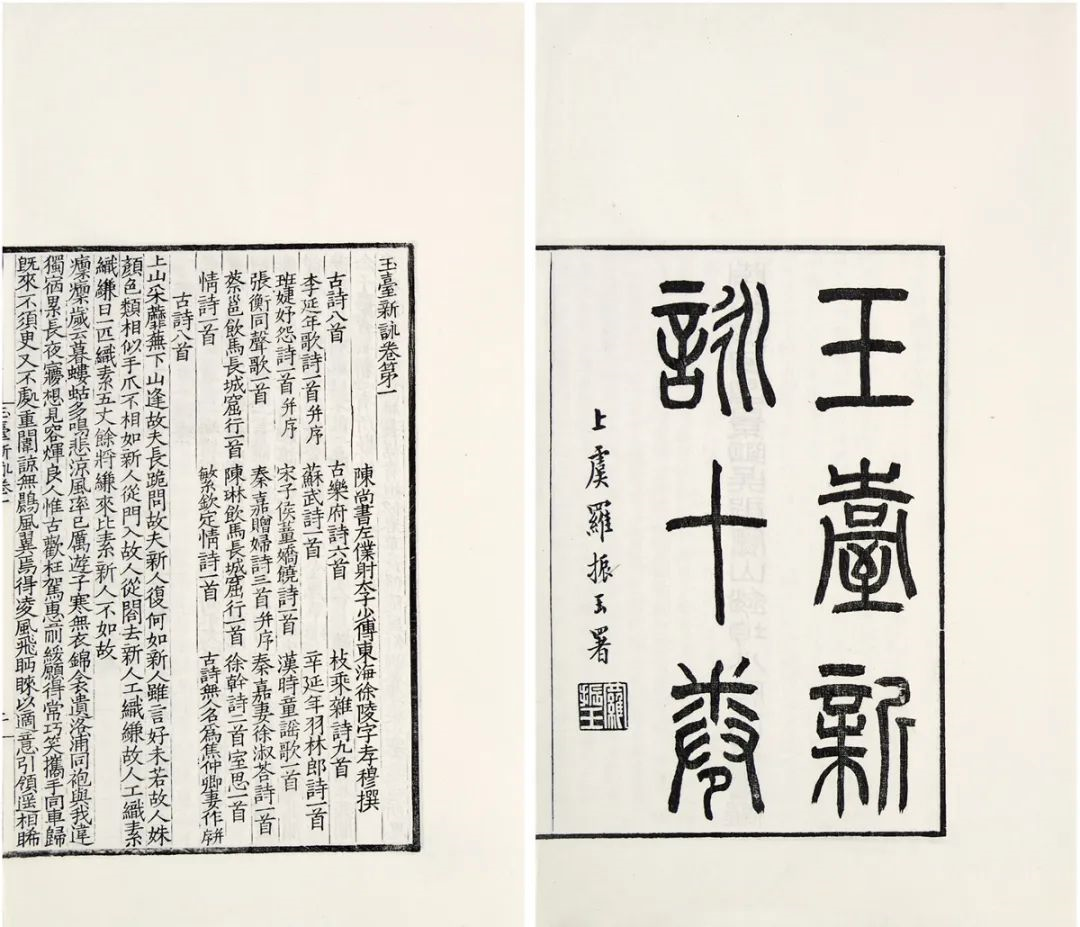 玉臺新
詠十卷
上虞羅振玉署
羅振玉
玉臺新詠卷第一
陳尚書左僕射太子少傅東海徐陵字孝穆撰
古詩八首 古樂府詩六首 枚乘雜詩九首
李延年歌詩一首并序 蘇武詩一首 辛延年羽林郎詩一首
班婕妤怨詩一首并序 宋子侯董嬌饒詩一首 漢時童謠歌一首
張衡同聲歌一首 秦嘉贈婦詩三首并序 秦嘉妻徐淑荅詩一首
蔡邕飲馬長城窟行一首 陳琳飲馬長城窟行一首 徐幹詩二首室思一首
情詩一首 繁欽定情詩一首 古詩無人名爲焦仲卿妻作并序
古詩八首
上山采蘼蕪下山逢故夫長跪問故夫新人復何如新人雖言好未若故人姝
顏色類相似手爪不相如新人從門入故人從閤去新人工織縑故人工織素
織縑日一匹織素五丈餘將縑來比素新人不如故
凜凜歲云暮螻蛄多鳴悲涼風率已厲遊子寒無衣錦衾遺洛浦同袍與我違
獨宿累長夜夢想見容煇良人惟古歡枉駕惠前綏願得常巧笑攜手同車歸
既來不須臾又不處重闈諒無鷐風翼焉得凌風飛眄睞以適意引領遥相睎